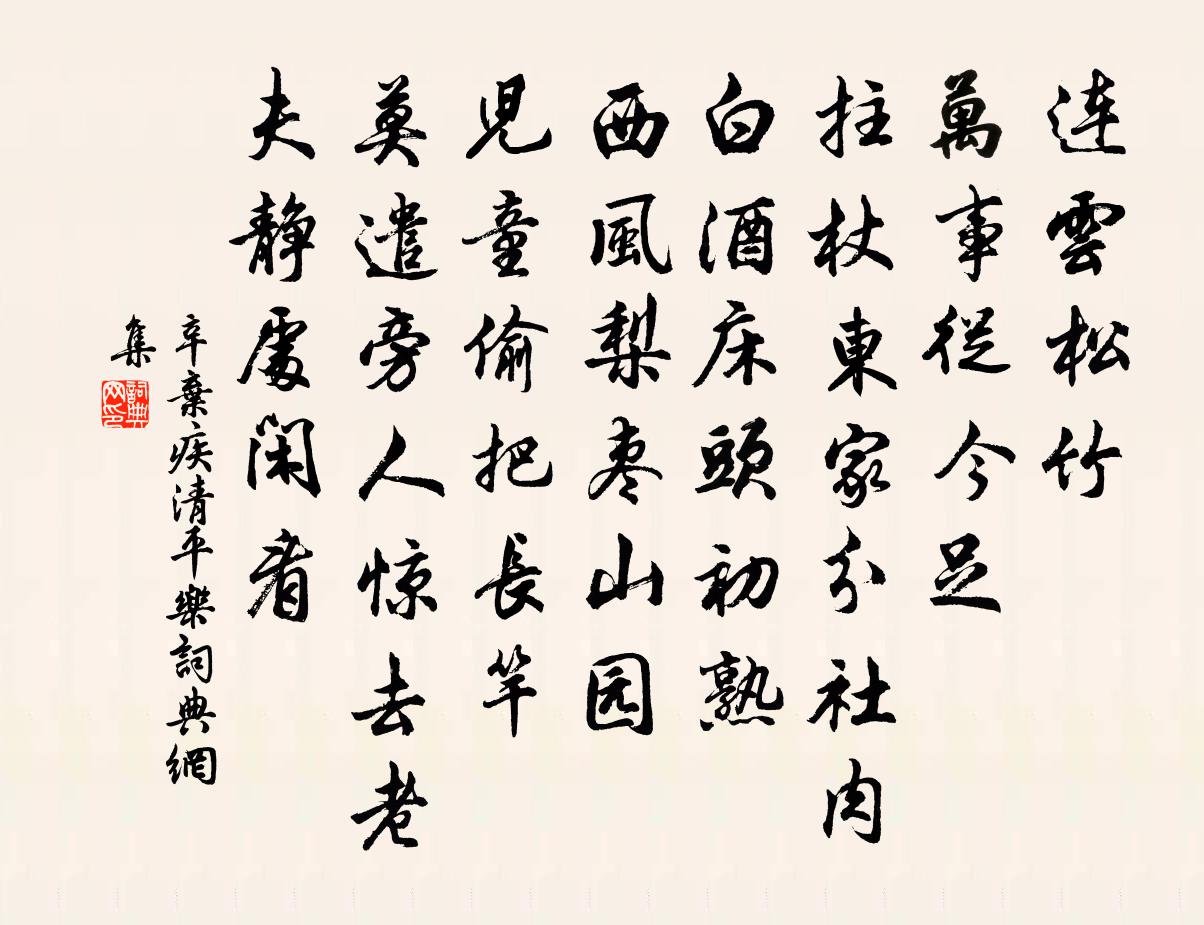 连雲松竹
萬事從今足
拄杖東家分社肉
白酒床頭初熟
西風梨枣山园
児童偷把長竿
莫遣旁人惊去老
夫静處闲看
辛棄疾清平樂詞典網
集
詞典網印